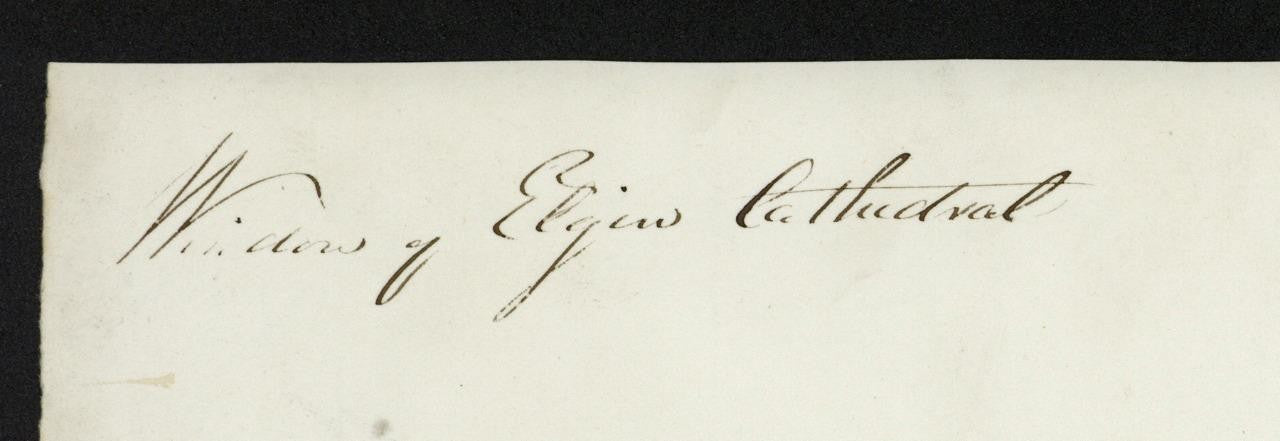 Window of Elgin Cathedral